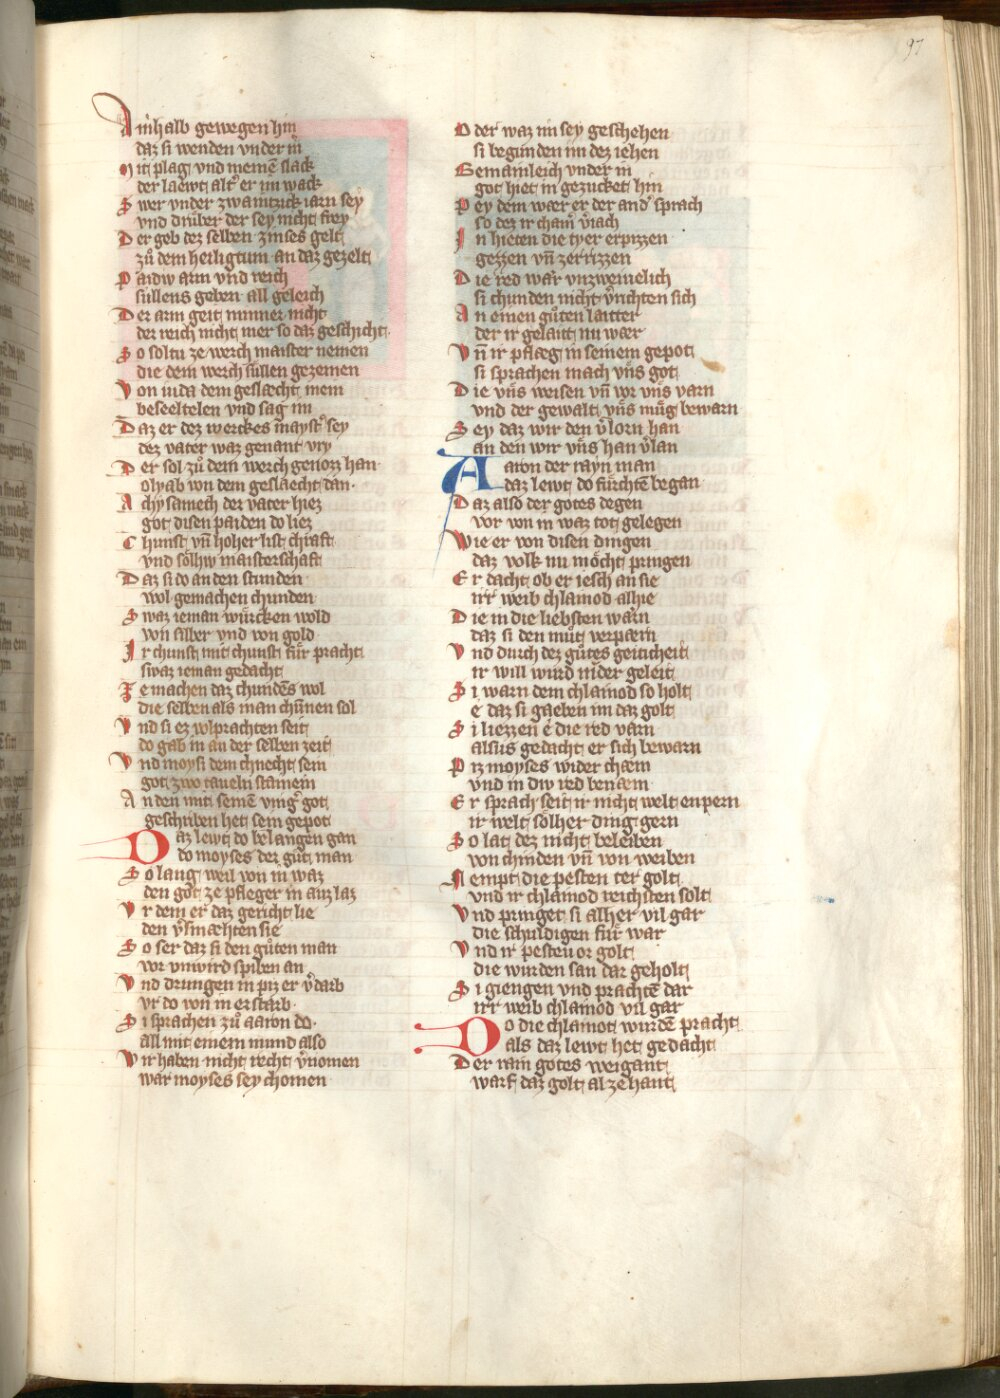 97
Ainhalb gewegen hin
daz si wenden vnder in
Mit plag vnd meinē slack
der laewt altˢ er im wack
Swer vnder zwaintzick iarn sey
vnd drüber der sey nicht frey
Der geb dez selben zinses gelt
zů dem heiligtum an daz gezelt
Paidw arm vnd reich
süllens geben all geleich
Der arm geit minner nicht
der reich nicht mer so daz geschicht
So soltu ze werch maister nemen
die dem werch süllen gezemen
Von iuda dem geslaecht mein
beseeltelen vnd sag im
Daz er dez werckes maystˢ sey
dez vater waz genant vry
Der sol zů dem werch genozz han
olyab von dem geslaecht dan.
Achysamech dez vater hiez
got disen paiden do liez
Chunst vn̄ hoher list chraft
vnd sölhw maisterschaft
Daz si do an den stunden
wol gemachen chunden
Swaz ieman würcken wold
von silber vnd von gold
Ir chunst mit chunst für pracht
swaz ieman gedacht
Ze machen daz chundēs wol
die selben als man chünen sol
Vnd si ez volprachten seit
do gab in an der selben zeit
Vnd moysi dem chnecht sein
got zwo taueln stainein
An den mit seinē vingˢ got
geschriben het sein gepot
Daz lewt do belangen gan
do moyses der gůt man
So lang weil von in waz
den got ze pfleger in auz laz
Vr dem er daz gericht lie
den v̄smaechten sie
So ser daz si den gůten man
vor vnwird spiben an
Vnd drungen in piz er v̄darb
vr do von in erstarb
Si sprachen zů aaron do.
all mit einem mund also
Wir haben nicht recht v̄nomen
war moyses sey chomen
Oder waz im sey geschehen
si begunden im dez iehen
Gemainleich vnder in
got hiet in gezucket hin
Pey dem waer er der andˢ sprach
so dez ir cham v̄iach
In hieten die tyer erpizzen
gezzen vn̄ zerrizzen
Die red war vnzweinelich
si chunden nicht v̄richten sich
An einen gůten laitter
der ir gelaut nu waer
Vn̄ ir pflaeg in seinem gepot
si sprachen mach vn̄s got
Die vn̄s weisen vn̄ vor vn̄s varn
vnd der gewalt vn̄s müg bewarn
Sey daz wir den v̄lorn han
an den wir vn̄s han v̄lan
Aaron der rayn man
daz lewt do fürchtē began
Daz also der gotes degen
vor von in waz tot gelegen
Wie er von disen dingen
daz volk nu möcht pringen
Er dacht ob er iesch an sie
irr weib chlainod alhie
Die in die liebsten warn
daz si den můt verpaern
Vnd durch dez gůtes geiticheit
ir will wurd nider geleit
Si warn dem chlainod so holt
e daz si gaeben im daz golt
Si liezzen e die red varn
alsus gedacht er sich bewarn
Piz moyses wider chaem
vnd in diw red benaem
Er sprach seit ir nicht welt enpern
ir welt sölher ding gern
So lat dez nicht beleiben
von chinden vn̄ von weiben
Nempt die pesten ter golt
vnd ir chlainod reichsten solt
Vnd pringet si alher vil gar
die schuldigen für war
Vnd ir pesten or golt
die wurden san dar geholt
Si giengen vnd prachtē dar
irr weib chlainod vil gar
Do die chlainot wurdē pracht
als daz lewt het gedacht
Der rain gotes weigant
warf daz golt al ze hant